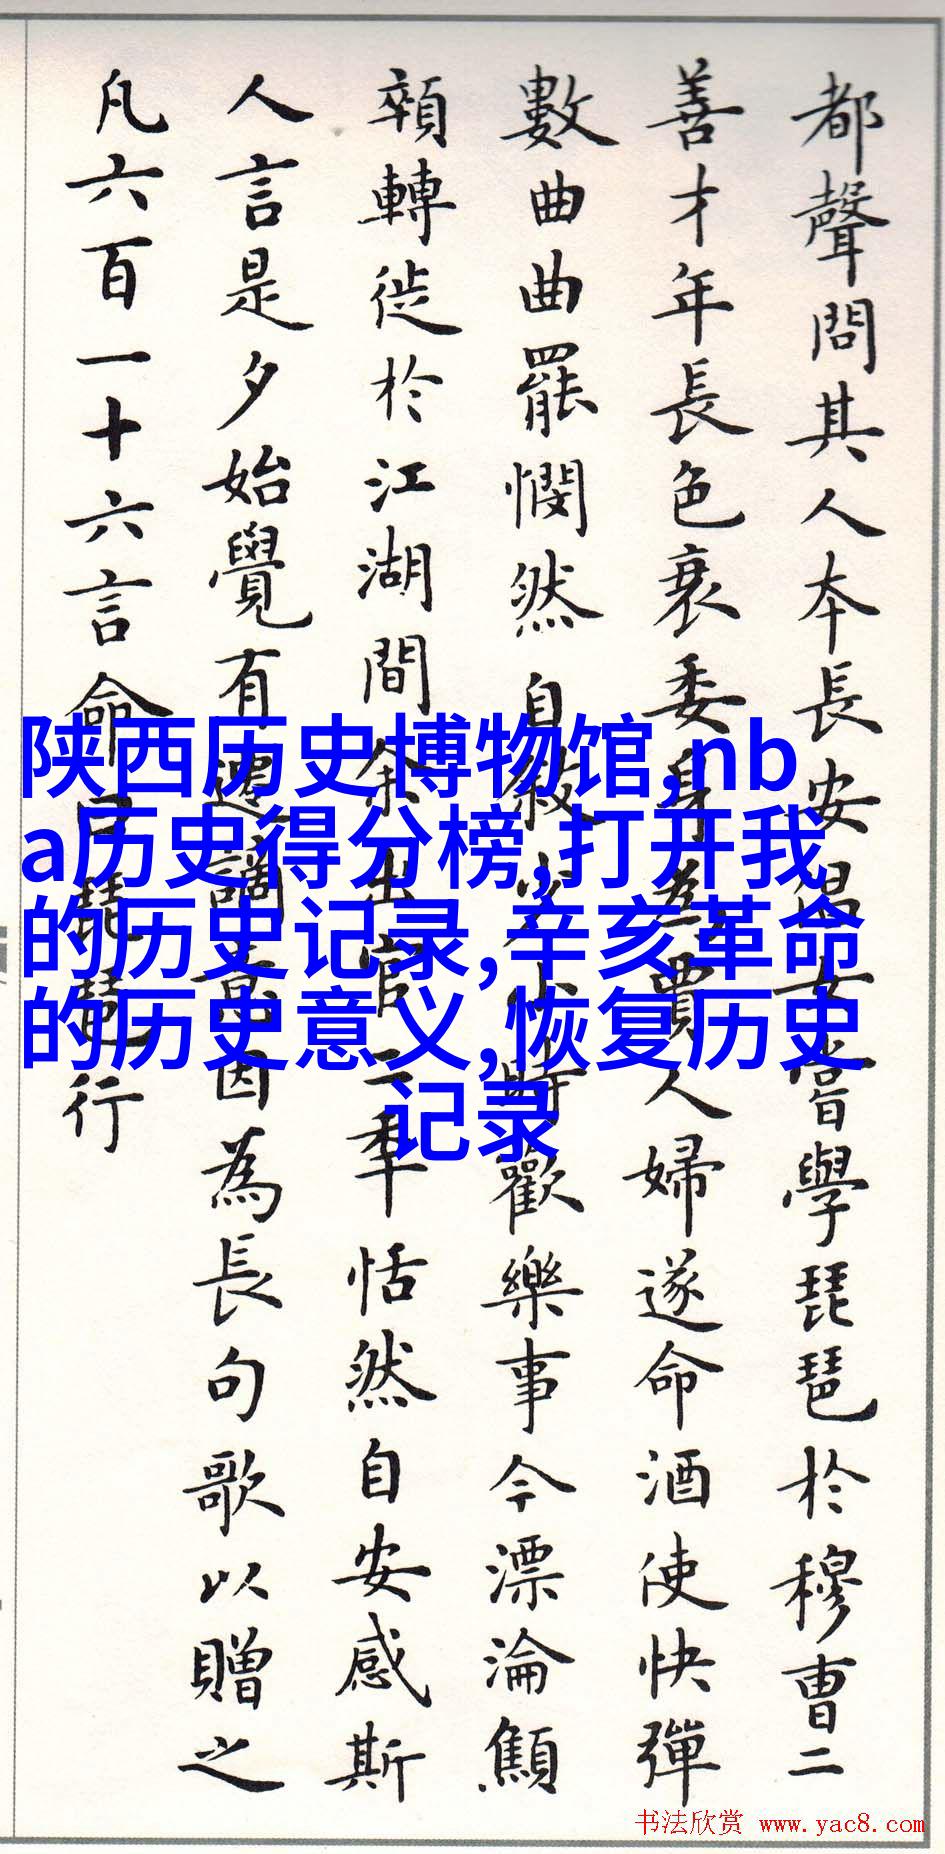 都聲問其人本長安倡女嘗學琵琶於穆曹二
善才年長色衰委身為賈人婦遂命酒使快彈
數曲曲罷憫然自敘少小時歡樂事今漂淪顦
顇轉徙於江湖間余出官二秊恬然自安感斯
人言是夕始覺有遷謫意因為長句歌以贈之
凡六百一十六言命曰琵琶行
陕西历史博物馆,nb
a历史得分榜,打开我
的历史记录,辛亥革命
的历史意义,恢复历史
记录
书法欣赏 www.yac8.com